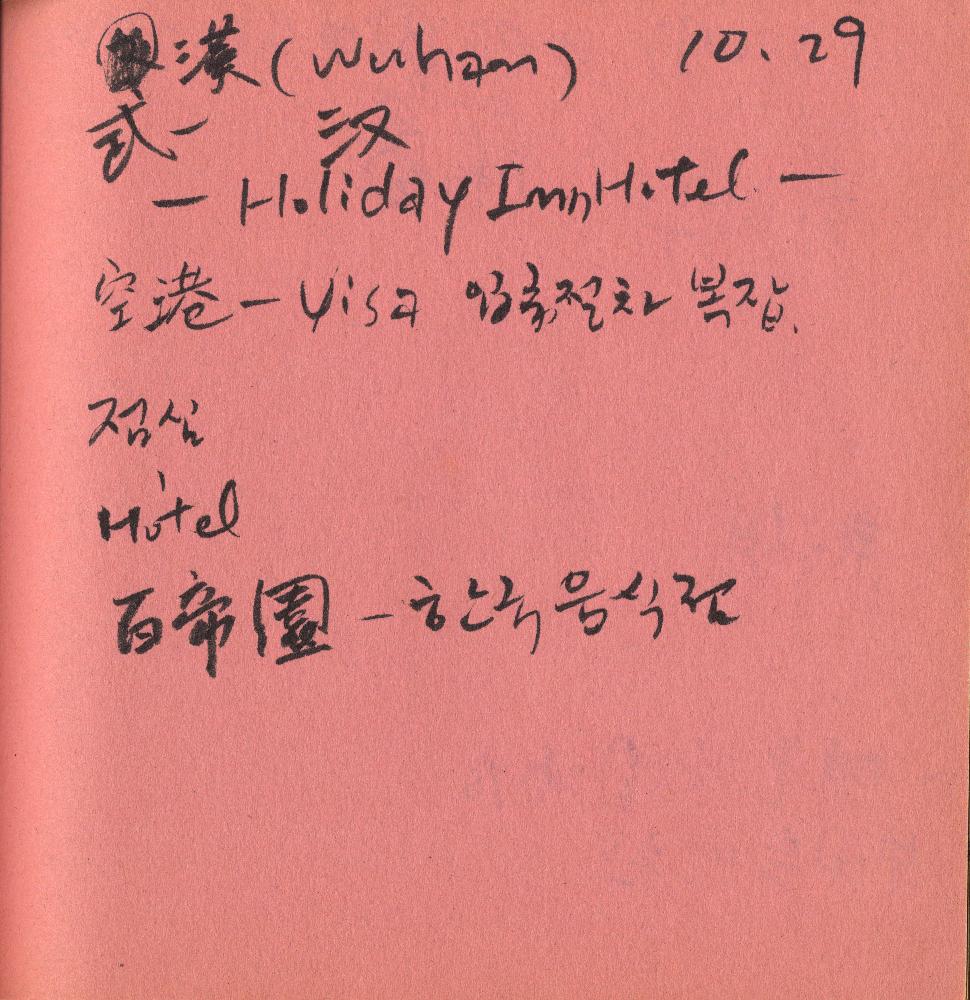 漢 (Wuhan) 10. 29
武- 汉
- Holiday Inn Hotel -
空港 - Visa 입국절차 복잡.
점심
Hotel
百帝園 - 한국음식점